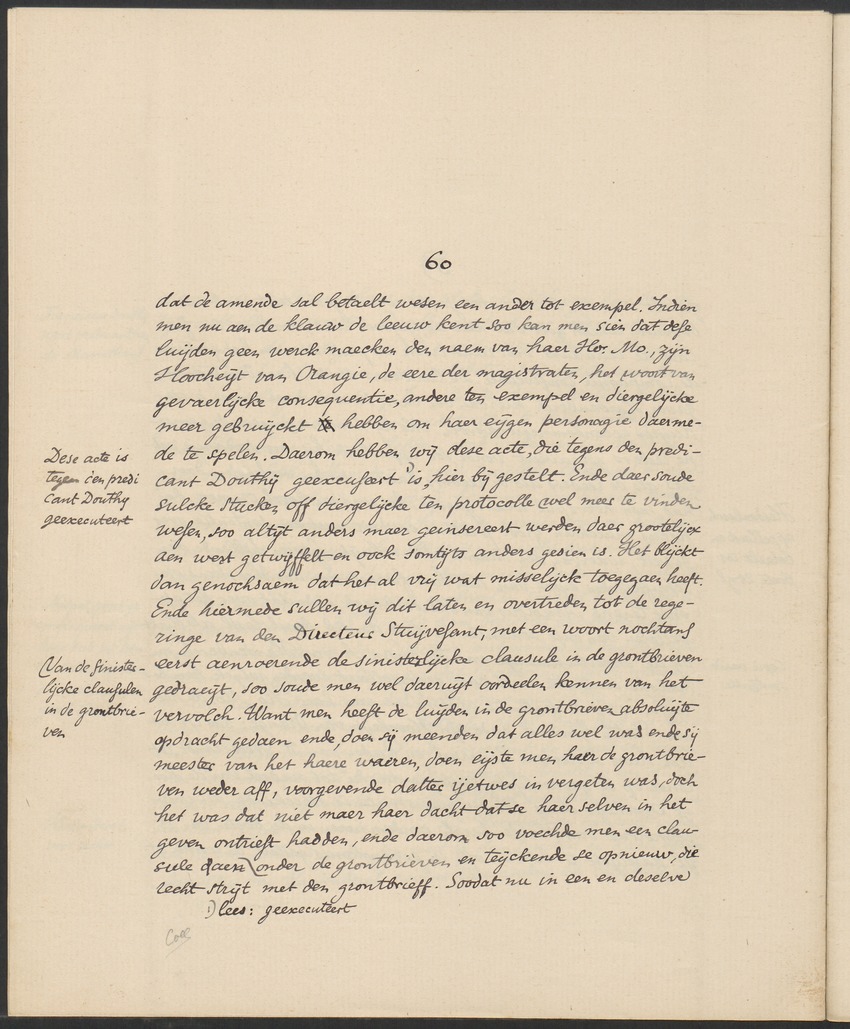 60
dat de amende sal betaelt wesen een ander tot exempel. Indien
men nu aen de klauw de leeuw kent soo kan men sien dat dese
luijden geen werck maecken den naem van haer Ho. Mo., zijn
Hoocheijt van Orangie, de eere der magistraten, het woort van
gevaerlijcke consequentie, andere ten exempel en diergelijcke
meer gebruijckt te hebben om haer eijgen personagie daerme-
de te spelen. Daerom hebben wij dese acte, die tegens den predi-
cant Douthij geexcuseert 1) is, hier bij gestelt. Ende daer soude
sulcke stucken off diergelijcke ten protocolle wel meer te vinden
wesen, soo altijt anders maer geinsereert werden daer grootelijcx
aen wert getwijffelt en oock somtijts anders gesien is. Het blijckt
dan genochsaem dat het al vrij wat misselijck toegegaen heeft.
Ende hiermede sullen wij dit laten en overtreden tot de rege-
ringe van den Directeur Stuijvesant, met een woort nochtans
eerst aenroerende de sinisterlijcke clausule in de grontbrieven
gedraeijt, soo soude men wel daeruijt oordeelen kennen van het
vervolch. Want men heeft de luijden in de grontbrieven absoluijte
opdracht gedaen ende, doen sij meenden dat alles wel was ende sij
meester van het haere waeren, doen eijste men haer de grontbrie-
ven weder aff, voorgevende datter ijetwes in vergeten was, doch
het was dat niet maer haer dacht dat se haer selven in het
geven ontrieft hadden, ende daerom soo voechde men een clau-
sule daer onder de grontbrieven en teijckende se opnieuw, die
recht strijt met den grontbrieff. Soodat nu in een en deselve
1) lees: geexecuteert
Coll
Dese acte is
tegen den predi
cant Douthy
geexecuteert
Van de sinister-
lijcke clausulen
in de grontbrie-
ven